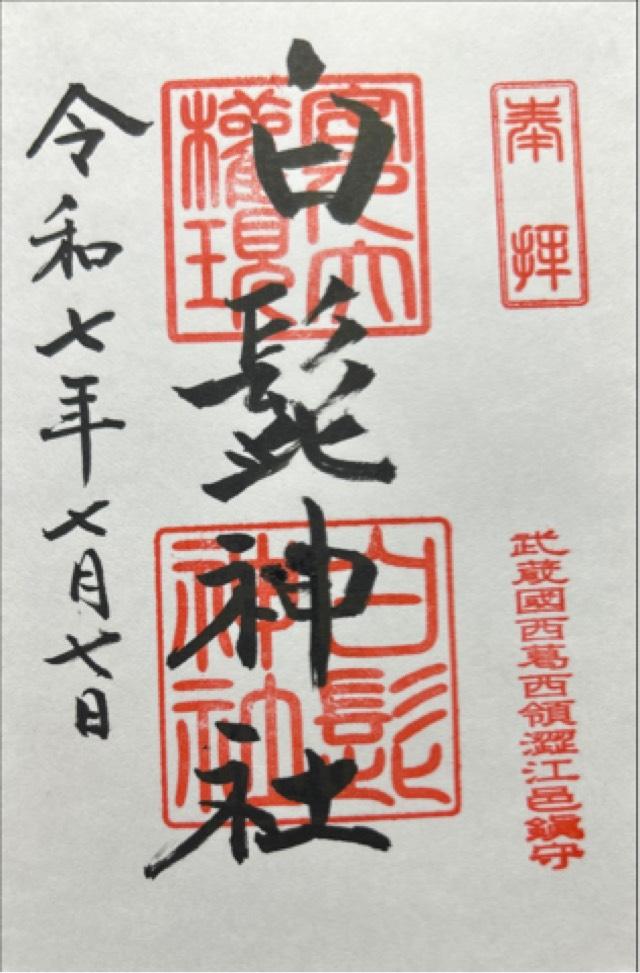 奉拝
武蔵國西葛西領澀江邑鎭守
客人大權現
白髭神社
白髭神社
令和七年七月七日